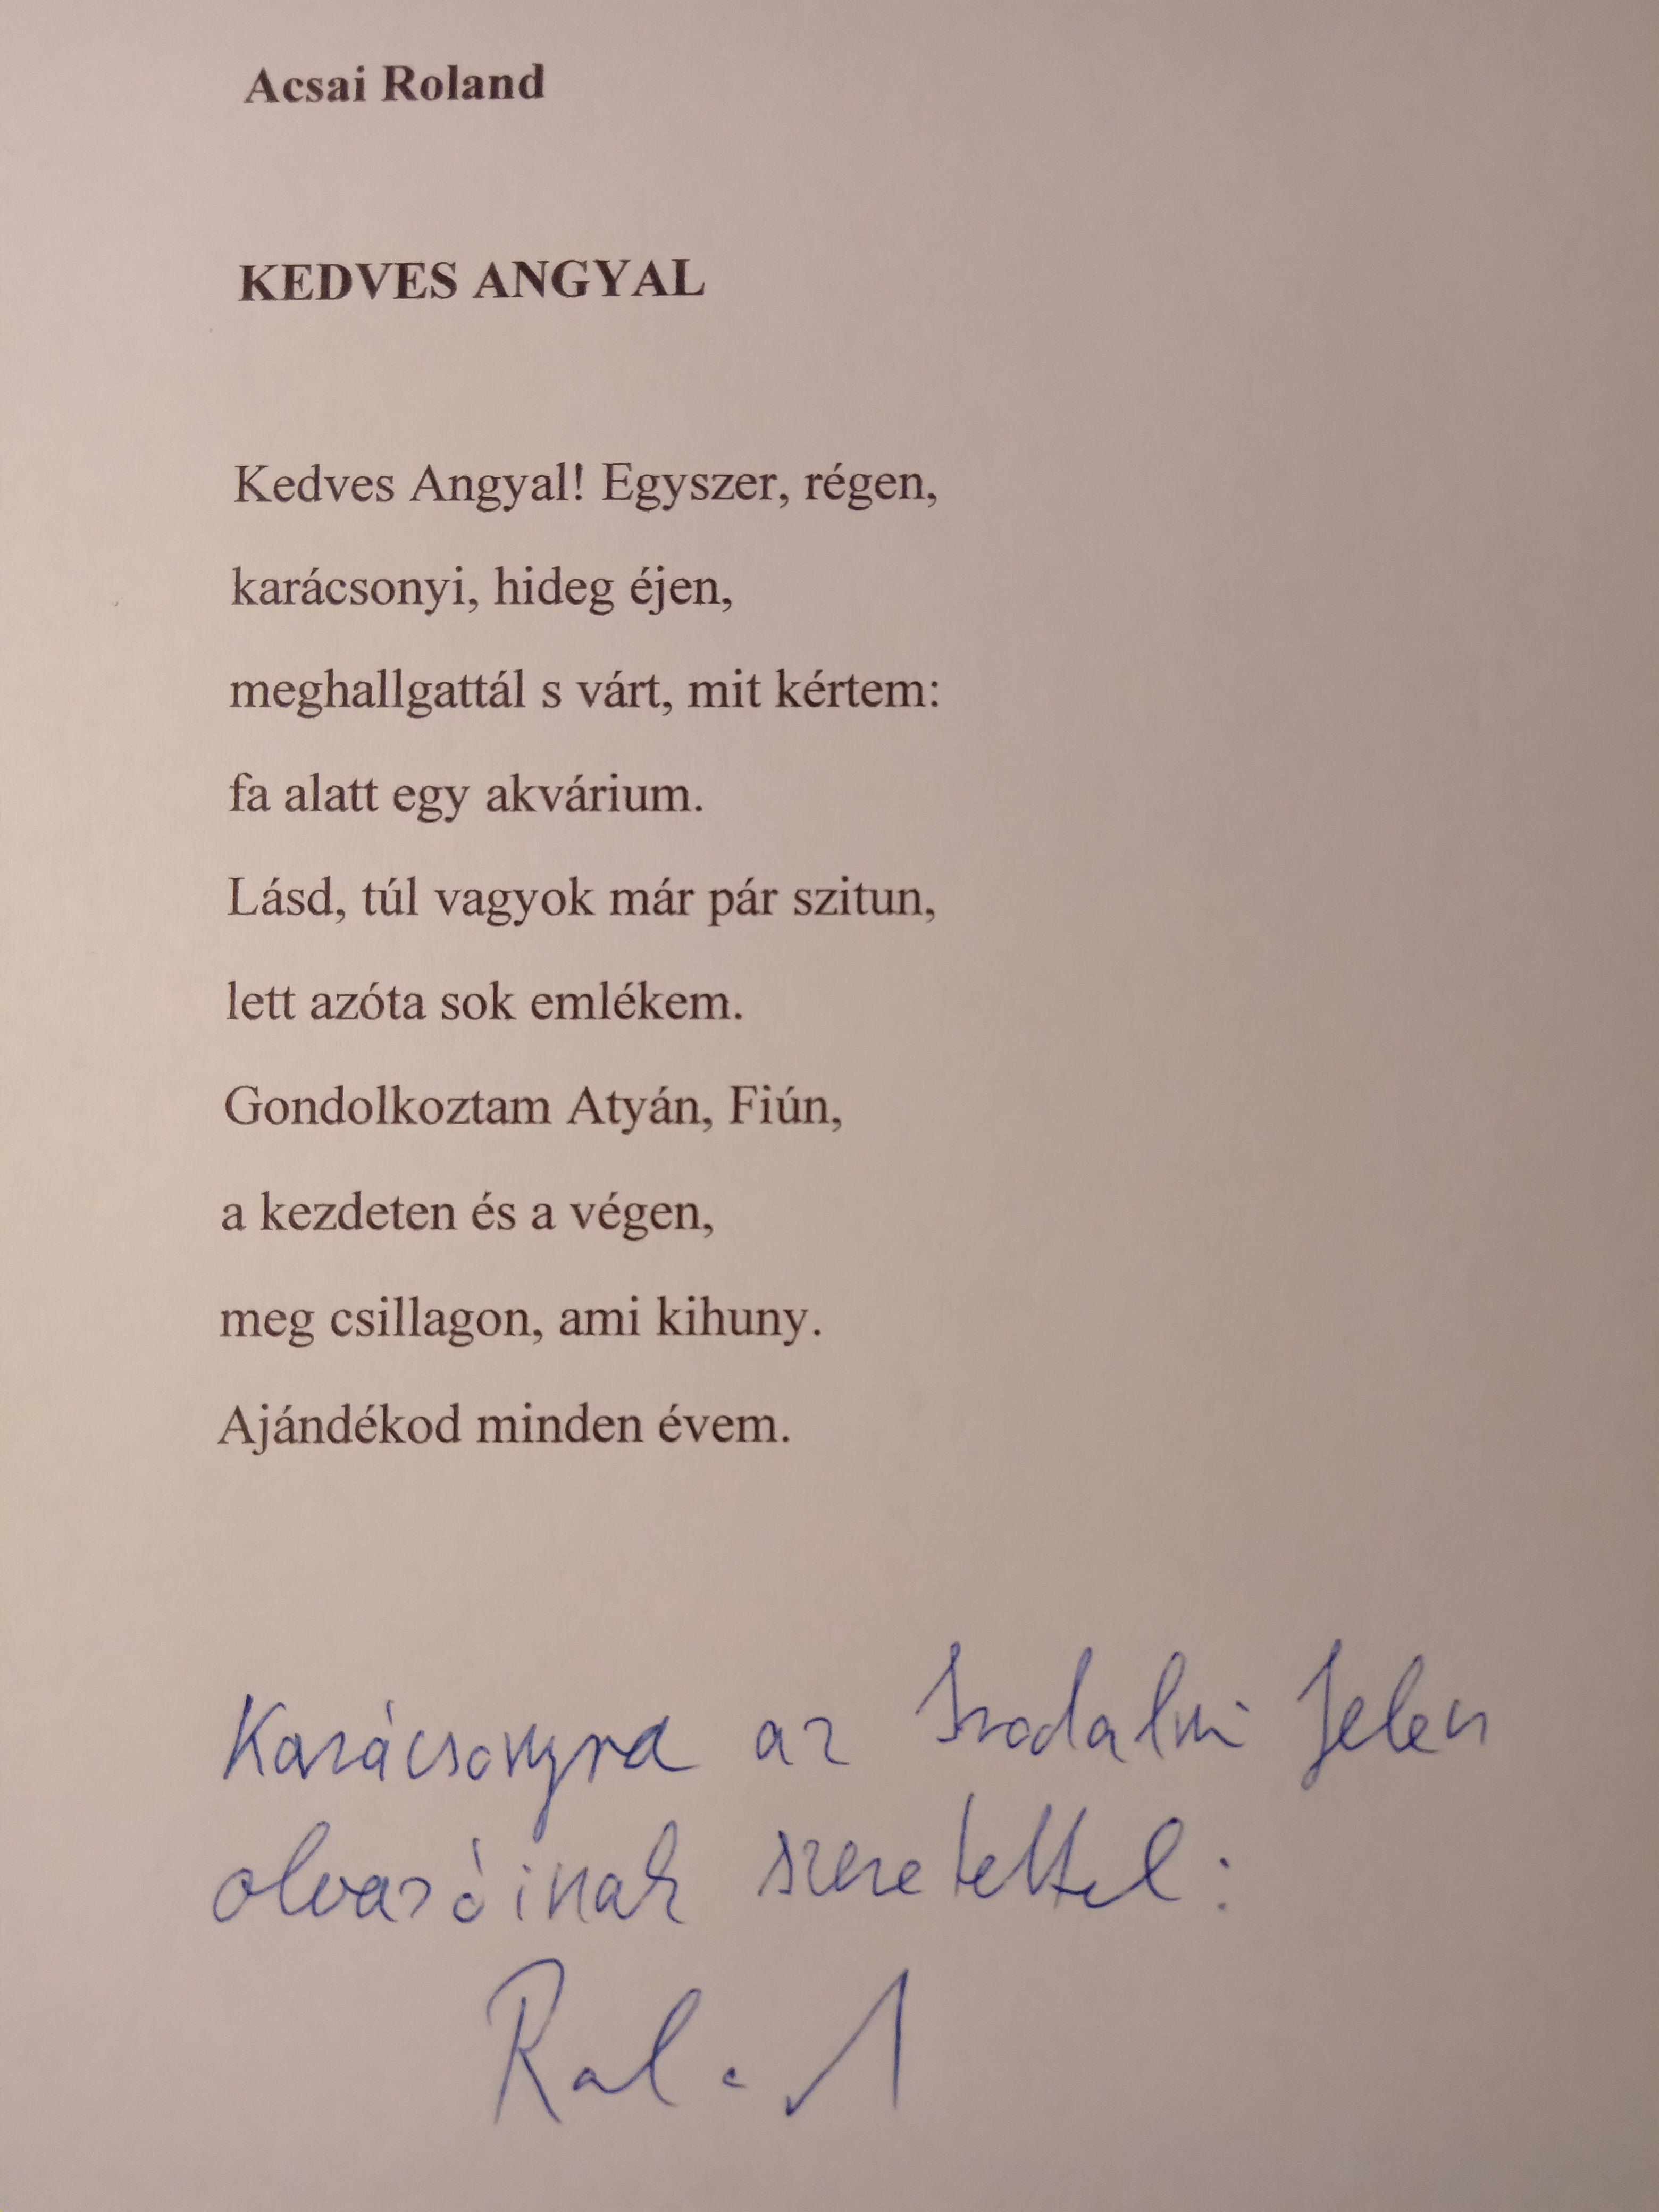 Acsai Roland
KEDVES ANGYAL
Kedves Angyal! Egyszer, régen,
karácsonyi, hideg éjen,
meghallgattál s várt, mit kértem:
fa alatt egy akvárium.
Lásd, túl vagyok már pár szitun,
lett azóta sok emlékem.
Gondolkoztam Atyán, Fiún,
a kezdeten és a végen,
meg csillagon, ami kihuny.
Ajándékod minden évem.
Karácsonyra az Irodalmi Jelen
olvasóinak szeretettel: